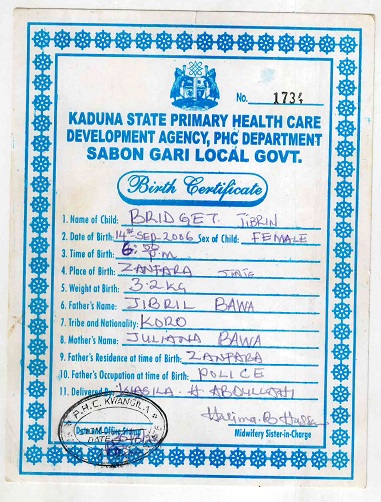 No. 173
KADUNA STATE PRIMARY HEALTH CARE
DEVELOPMENT AGENCY, PHC DEPARTMENT
SABON GARI LOCAL GOVT.
Birth Certificate
1. Name of Child: BRIDGET JIBRIN
2. Date of Birth: 14th SEP 2006 Sex of Child: FEMALE
3. Time of Birth: P.M
4. Place of Birth: ZANFARA
5. Weight at Birth: 3.2KG
6. Father's Name: JIBRIL BAWA
7. Tribe and Nationality: KORO
8. Mother's Name: JULIANA BAWA
9. Father's Residence at time of Birth: ZANFARA
10. Father's Occupation at time of Birth: POLICE
11. Delivered By: H ABDULLAHI
P.H.C. KWANGILA
Date and Office Stamp
DATE
Midwifery Sister-in-Charge